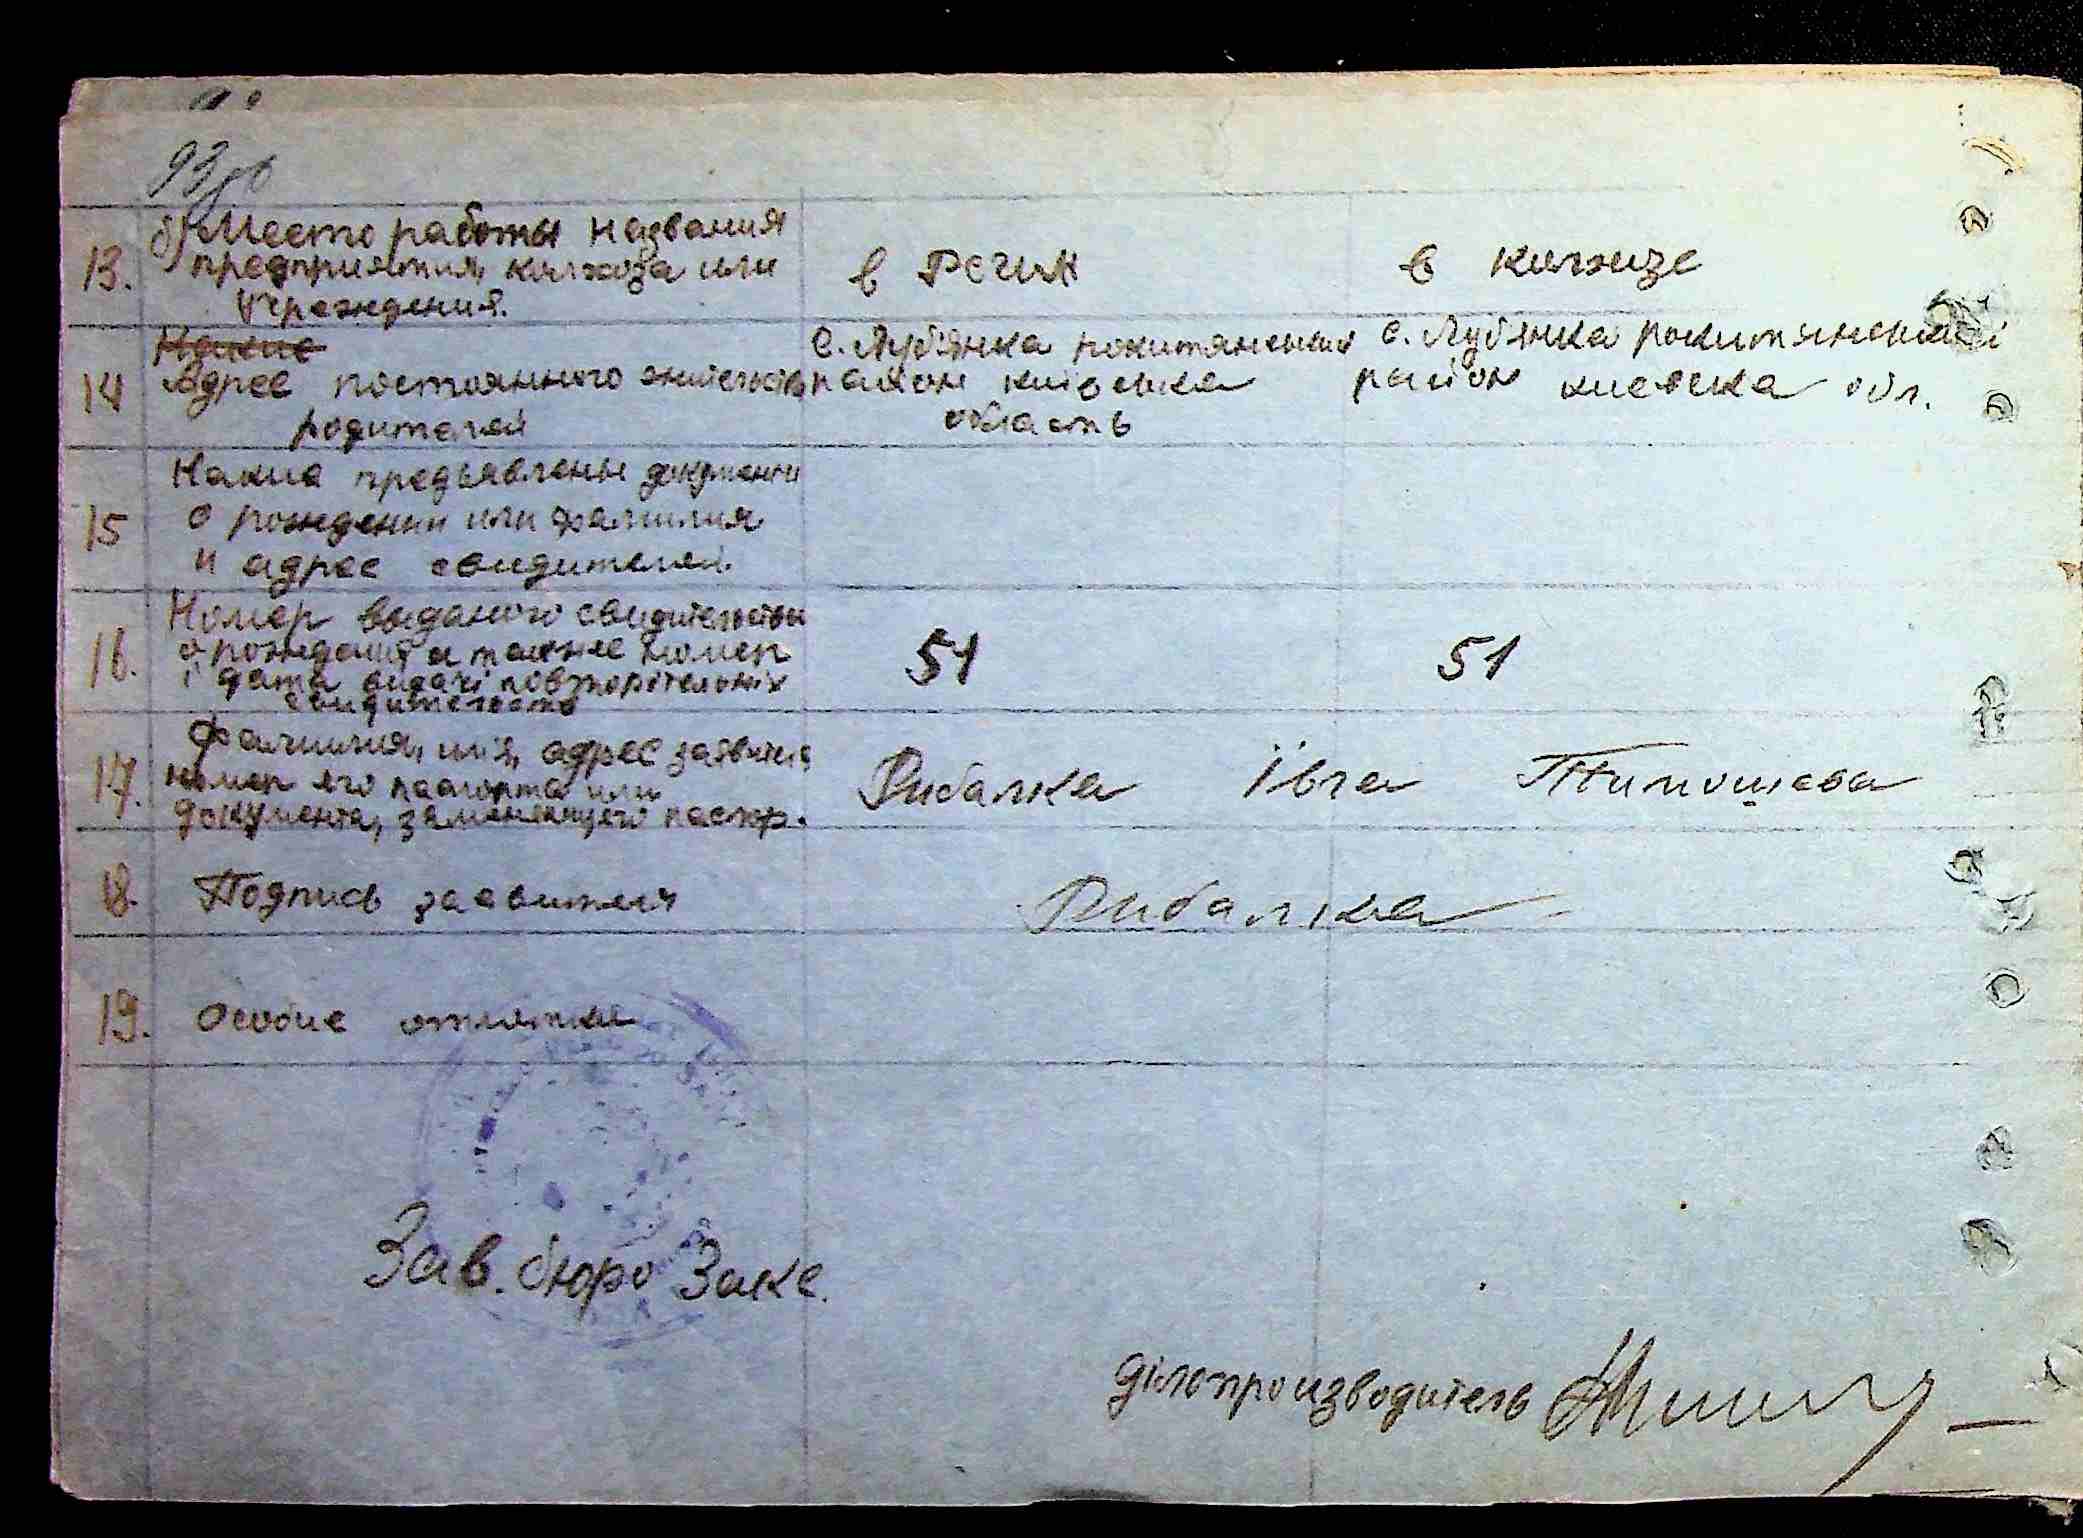 93об
13. б) Место работы названия
предприятия, колхоза или
учреждения.
в Р.С.Ч.И.К
в колхизе
Накие
14 Адрес постоянного жительства
родителей
с. Лубянка рокитянський
район київська
область
с. Лубянка рокитянський
район києвска обл.
15 Накие предъявлены документи
о рождении или фамилия
и адрес свидителей.
16. Номер выданого свидительства
о рождении, а также номер
і дата видачі повторітельних
свидительств
51
51
17. Фамилия, имя, адрес заявителя
номер его паспорта или
документа, заменяющего паспор.
Рибалка Івга Тимошева
18. Подпись заявителя
Рибалка
19. Особие отметки
Зав. бюро Закс.
ділопроизводитель